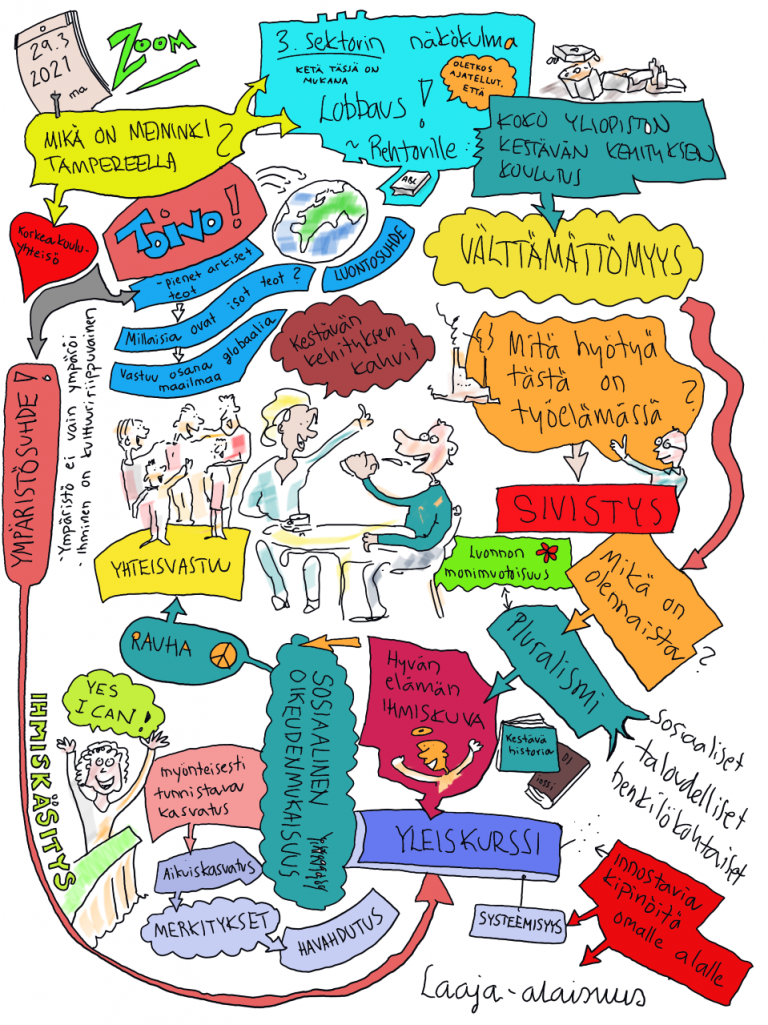 29.3
2021
ma
ZOOM
3. Sektorin näkökulma
KETÄ TÄSSÄ ON
MUKANA
OLETKOS
AJATELLUT,
ETTÄ
Lobbaus !
~ Rehtorille:
ABC
MIKÄ ON MEININKI
TAMPEREELLA ?
KOKO YLIOPISTON
KESTÄVÄN KEHITYKSEN
KOULUTUS
Korkeakoulu-
yhteisö
TOIVO!
- pienet arkiset
teot
Millaisia ovat isot teot?
Vastuu osana globaalia
maailmaa
LUONTOSUHDE
VÄLTTÄMÄTTÖMYYS
Kestävän
kehityksen
kahvit
Mitä hyötyä
tästä on
työelämässä ?
SIVISTYS
YMPÄRISTÖSUHDE!
- Ympäristö ei vain ympäröi
- ihminen on kulttuuririippuvainen
YHTEISVASTUU
Luonnon
monimuotoisuus
Mikä on
olennaista ?
RAUHA
SOSIAALINEN
OIKEUDENMUKAISUUS
Hyvän
elämän
IHMISKUVA
Pluralismi
Sosiaaliset
taloudelliset
henkilökohtaiset
Kestävä
historia
YES
I CAN!
IHMISKÄSITYS
myönteisesti
tunnistava
kasvatus
Aikuiskasvatus
MERKITYKSET
HAVAHDUTUS
YLEISKURSSI
SYSTEEMISYYS
innostavia
kipinöitä
omalle alalle
Laaja-alaisuus